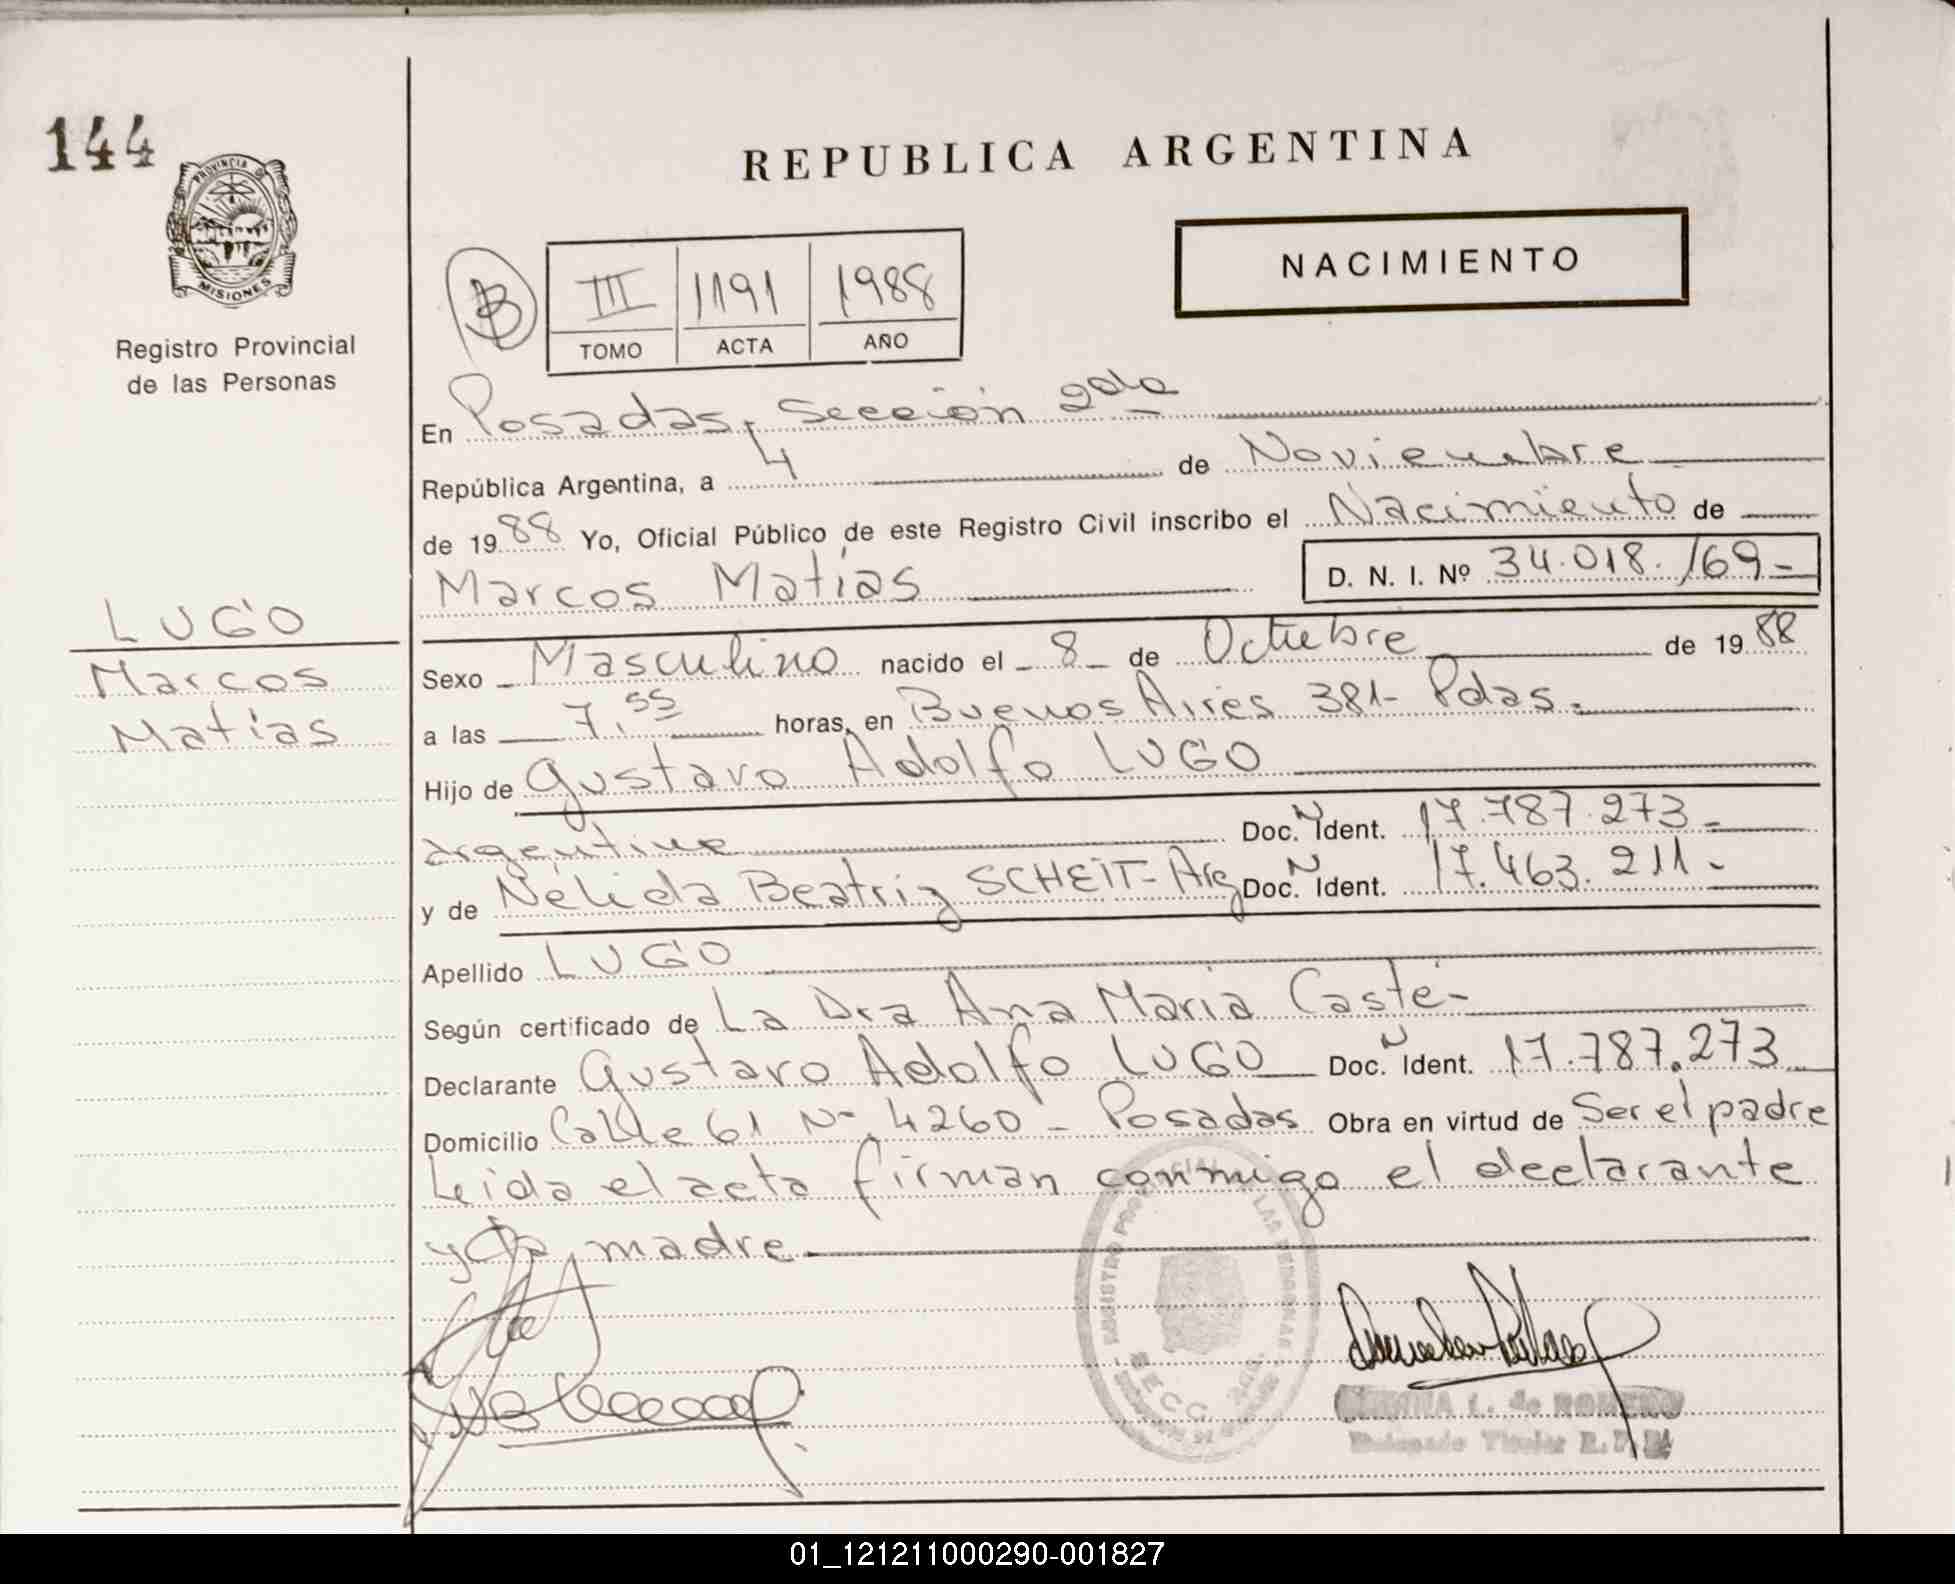 144
PROVINCIA DE MISIONES
Registro Provincial
de las Personas
REPUBLICA ARGENTINA
NACIMIENTO
B
III 1191 1988
TOMO ACTA AÑO
En Posadas, Sección 2da
República Argentina, a 4 de Noviembre
de 1988 Yo, Oficial Público de este Registro Civil inscribo el Nacimiento de
Marcos Matías D. N. I. Nº 34.018.169-
LUGO
Marcos
Matías
Sexo Masculino nacido el 8 de Octubre de 1988
a las 7,55 horas, en Buenos Aires 381- Pdas.
Hijo de Gustavo Adolfo LUGO
argentino Doc. N Ident. 17.787.273-
y de Nélida Beatriz SCHEIT- Arg Doc. N Ident. 17.463.211-
Apellido LUGO
Según certificado de La Dra Ana Maria Casté-
Declarante Gustavo Adolfo LUGO Doc. N Ident. 17.787.273
Domicilio Calle 61 Nº 4260 - Posadas Obra en virtud de Ser el padre
Leida el acta firman conmigo el declarante
y la madre
REGISTRO PROVINCIAL DE LAS PERSONAS
SECC. 2da.
L. de ROMERO
Delegado Titular R.P.P.
01_121211000290-001827